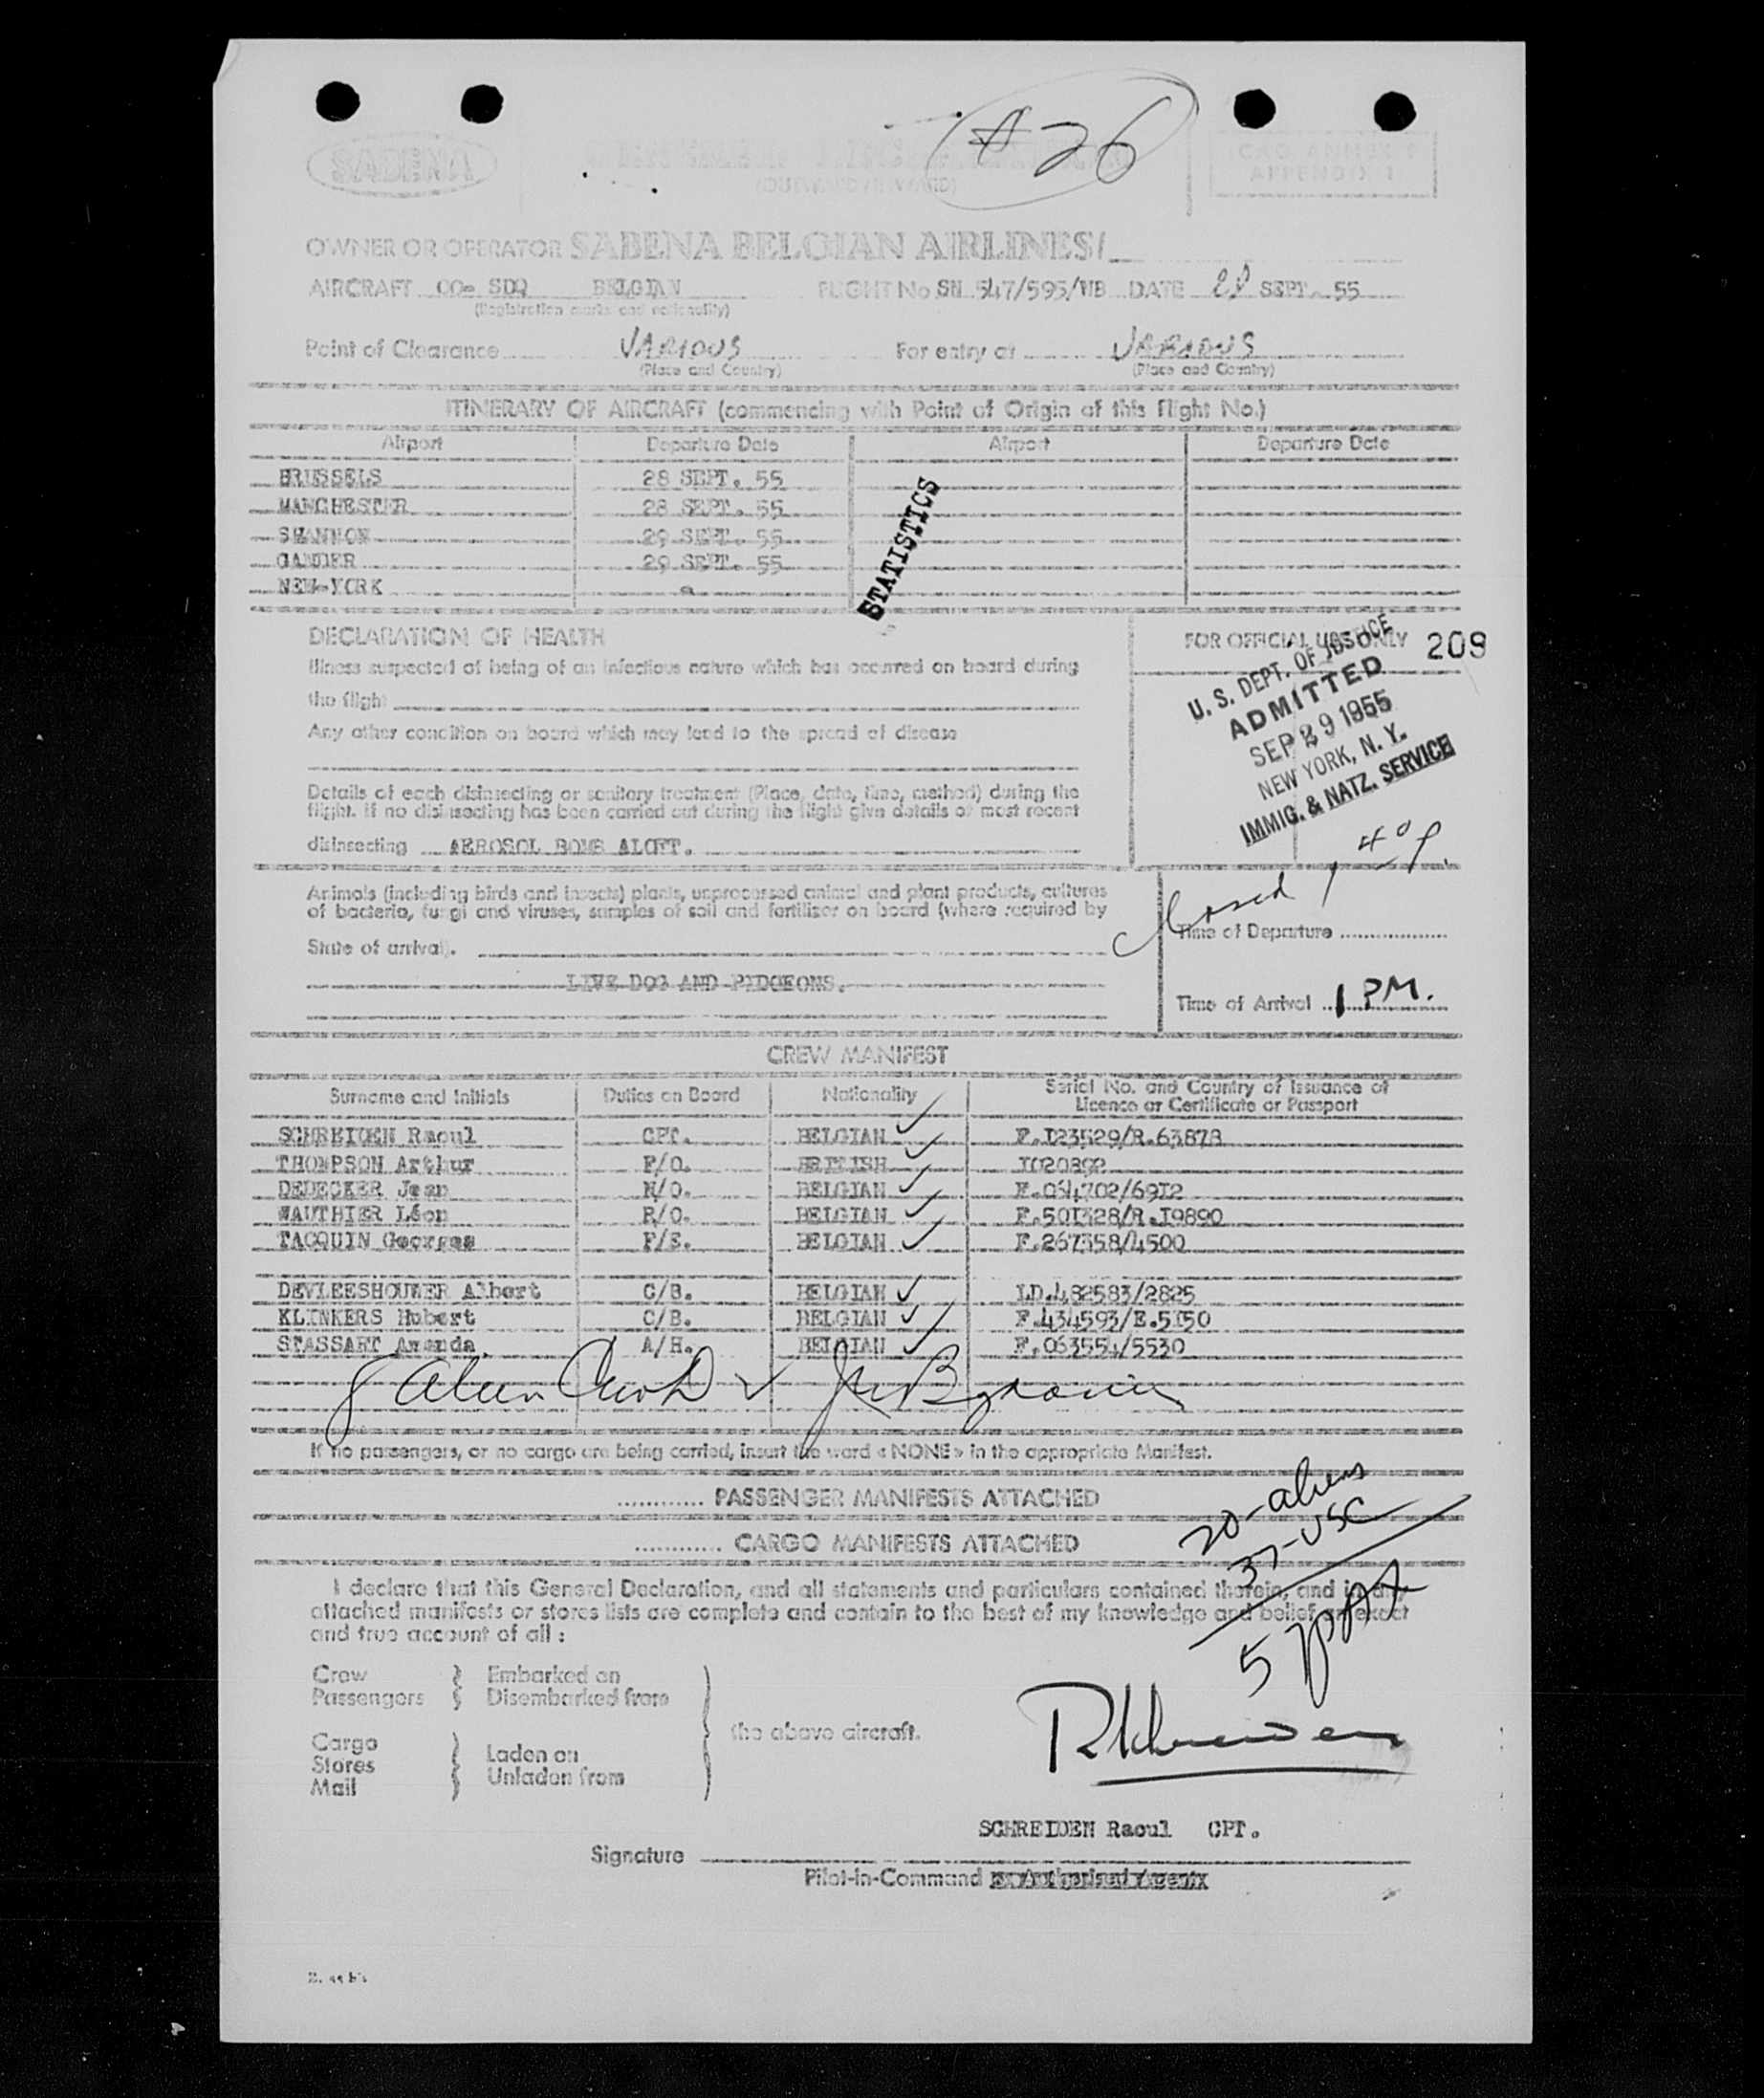 #26
SABENA
GENERAL
(OUTWARD/INWARD)
ICAO ANNEX 9
APPENDIX 1
OWNER OR OPERATOR SABENA BELGIAN AIRLINES/
AIRCRAFT OO- SDQ BELGIAN FLIGHT No SN 547/595/WB DATE 28 SEPT. 55
(Registration marks and nationality)
Point of Clearance VARIOUS For entry at VARIOUS
(Place and Country) (Place and Country)
ITINERARY OF AIRCRAFT (commencing with Point of Origin of this flight No.)
Airport Departure Date Airport Departure Date
BRUSSELS 28 SEPT. 55
MANCHESTER 28 SEPT. 55
SHANNON 29 SEPT. 55
GANDER 29 SEPT. 55
NEW-YORK
STATISTICS
DECLARATION OF HEALTH
Illness suspected of being of an infectious nature which has occurred on board during
the flight
Any other condition on board which may lead to the spread of disease
Details of each disinsecting or sanitary treatment (Place, date, time, method) during the
flight. If no disinsecting has been carried out during the flight give details of most recent
disinsecting AEROSOL BOMB ALOFT.
FOR OFFICIAL USE ONLY 209
U. S. DEPT. OF JUSTICE
ADMITTED
SEP 29 1955
NEW YORK, N. Y.
IMMIG. & NATZ. SERVICE
Animals (including birds and insects) plants, unprocessed animal and plant products, cultures
of bacteria, fungi and viruses, samples of soil and fertiliser on board (where required by
State of arrival).
LIVE DOG AND PIDGEONS.
Closed 1 40 p.
Time of Departure
Time of Arrival 1 PM.
CREW MANIFEST
Surname and Initials Duties on Board Nationality Serial No. and Country of Issuance of
Licence or Certificate or Passport
SCHREIDEN Raoul CPT. BELGIAN F.I23529/R.63878
THOMPSON Arthur F/O. BRITISH I020892
DEDECKER Jean N/O. BELGIAN F.064702/69I2
WAUTHIER Léon R/O. BELGIAN F.50I328/R.I9890
TACQUIN Georges F/E. BELGIAN F.267358/4500
DEVLEESHOUWER Albert C/B. BELGIAN LD.482583/2825
KLINKERS Hubert C/B. BELGIAN F.434593/E.5I50
STASSART Amanda. A/H. BELGIAN F.063554/5530
8 Alien
If no passengers, or no cargo are being carried, insert the word « NONE » in the appropriate Manifest.
PASSENGER MANIFESTS ATTACHED
CARGO MANIFESTS ATTACHED
20-aliens
37-USC
57 pax
I declare that this General Declaration, and all statements and particulars contained therein, and in any
attached manifests or stores lists are complete and contain to the best of my knowledge and belief an exact
and true account of all :
Crew
Passengers
Embarked on
Disembarked from
Cargo
Stores
Mail
Laden on
Unladen from
the above aircraft.
RSchreiden
SCHREIDEN Raoul CPT.
Signature
Pilot-in-Command or Authorised Agent